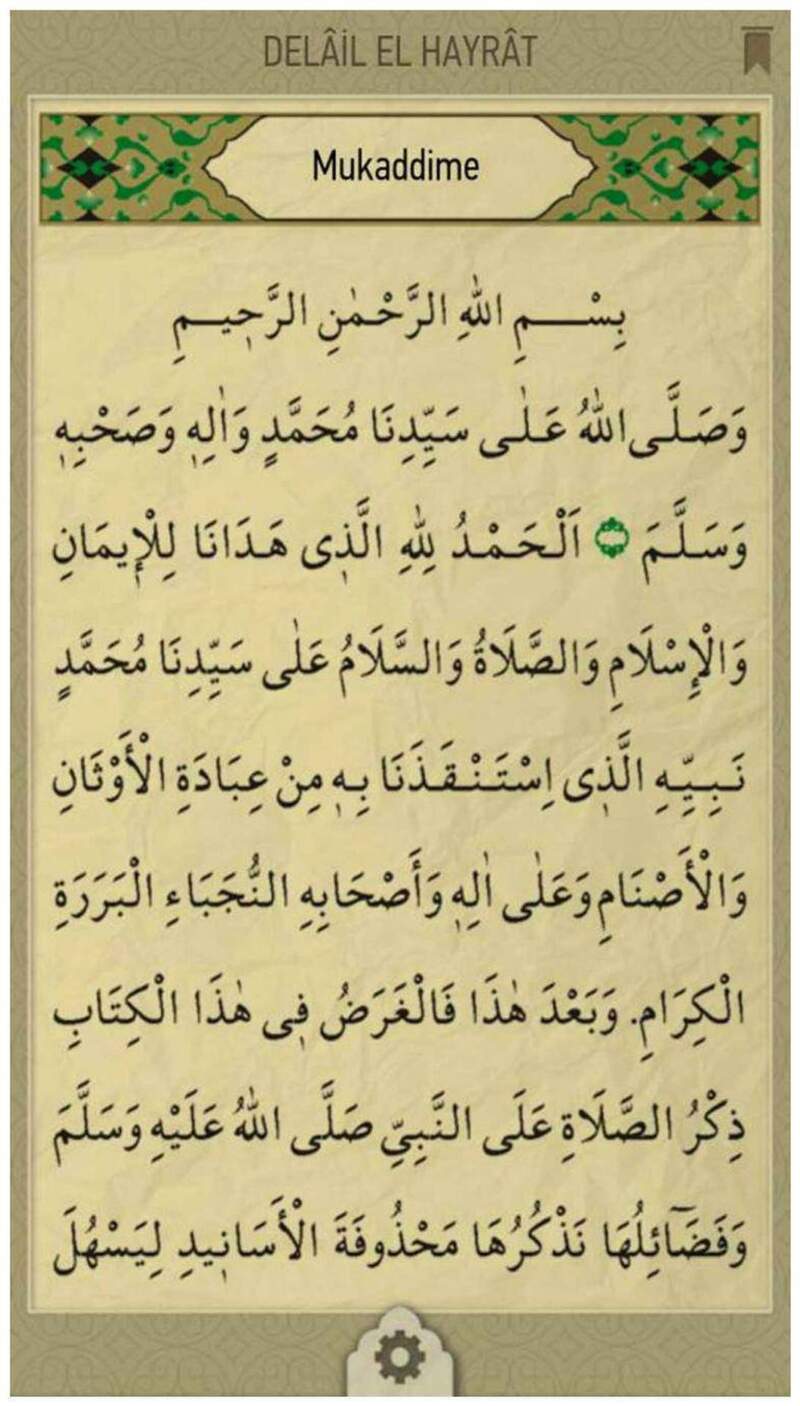 DELÂİL EL HAYRÂT
Mukaddime
بِسْــــمِ اللهِ الرَّحْمٰنِ الرَّحِيـمِ
وَصَلَّى اللهُ عَلٰى سَيِّدِنَا مُحَمَّدٍ وَاٰلِهٖ وَصَحْبِهٖ
وَسَلَّمَ ۝ اَلْحَمْدُ لِلّٰهِ الَّذٖى هَدَانَا لِلْإٖيمَانِ
وَالْإِسْلَامِ وَالصَّلَاةُ وَالسَّلَامُ عَلٰى سَيِّدِنَا مُحَمَّدٍ
نَبِيِّهِ الَّذٖى اِسْتَنْقَذَنَا بِهٖ مِنْ عِبَادَةِ الْأَوْثَانِ
وَالْأَصْنَامِ وَعَلٰى اٰلِهٖ وَأَصْحَابِهِ النُّجَبَاءِ الْبَرَرَةِ
الْكِرَامِ. وَبَعْدَ هٰذَا فَالْغَرَضُ فٖى هٰذَا الْكِتَابِ
ذِكْرُ الصَّلَاةِ عَلَى النَّبِيِّ صَلَّى اللهُ عَلَيْهِ وَسَلَّمَ
وَفَضَٓائِلُهَا نَذْكُرُهَا مَحْذُوفَةَ الْأَسَانٖيدِ لِيَسْهُلَ